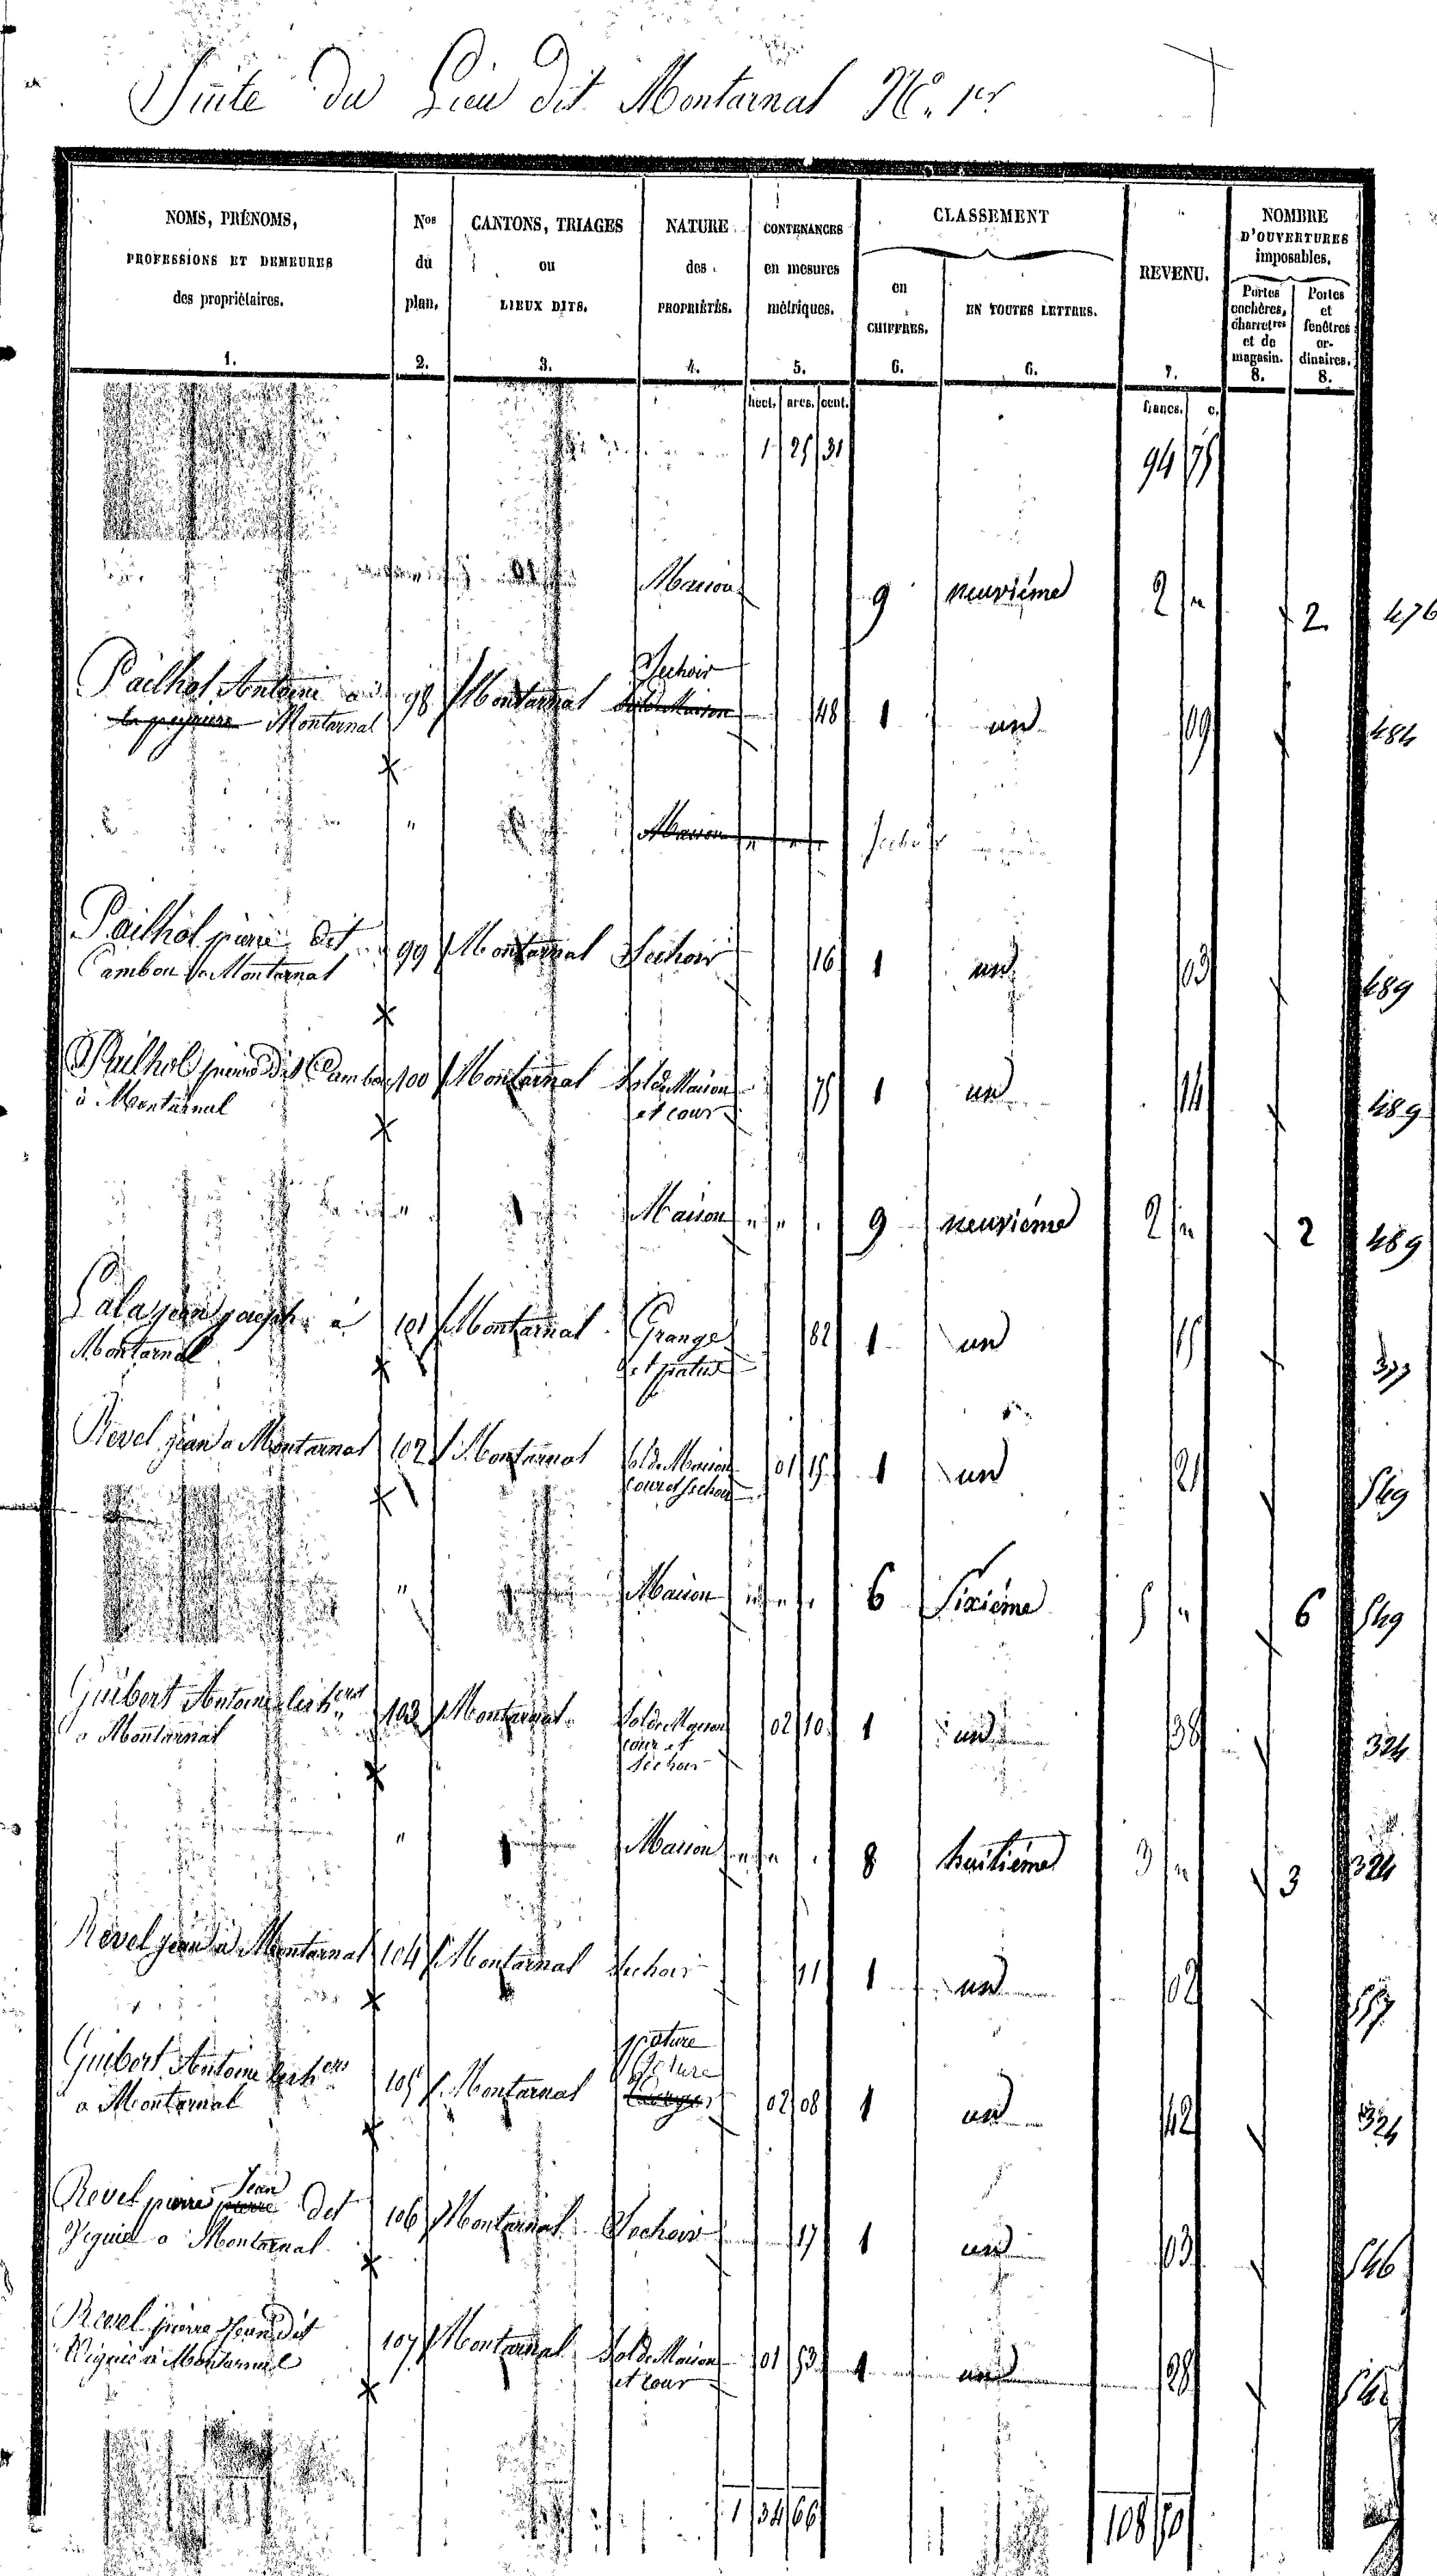 Suite du Lieu dit Montarnal N.o 1er
NOMS, PRÉNOMS,
PROFESSIONS ET DEMEURES
des propriétaires.
1.
Nos
du
plan.
2.
CANTONS, TRIAGES
ou
LIEUX DITS.
3.
NATURE
des
PROPRIÉTÉS.
4.
CONTENANCES
en mesures
métriques.
5.
CLASSEMENT
en
CHIFFRES.
6.
EN TOUTES LETTRES.
6.
REVENU.
7.
NOMBRE
D'OUVERTURES
imposables.
Portes
cochères,
charretres
et de
magasin.
8.
Portes
et
fenêtres
or-
dinaires.
8.
hect. ares. cent. francs. c.
1 25 31 94 75
Maison 9 neuviéme 2 " 2 476
Sechoir
Pailhol Antoine a 98 Montarnal Sol de Maison 48 1 un 09 484
Montarnal
" Maison " " " Sechoir
Pailhol pierre dit 99 Montarnal Sechoir 16 1 un 03 489
Cambou a Montarnal
Pailhol pierre dit Cambou 100 Montarnal Sol de Maison 75 1 un 14 489
à Montarnal et cour
" Maison " " 9 neuviéme 2 " 2 489
Lala jean joseph à 101 Montarnal Grange 82 1 un 15
Montarnal et patus
Revel jean a Montarnal 102 Montarnal Sol de Maison 01 15 1 un 21 549
cour et sechoir
" Maison " " " 6 Sixiéme 5 " 6 549
Guibert Antoine les hers 103 Montarnal Sol de Maison 02 10 1 un 38 324
a Montarnal cour et
Sechoir
" Maison " " 8 huitiéme 3 " 3 324
Revel jean a Montarnal 104 Montarnal Sechoir 11 1 un 02
pature
Guibert Antoine les hers 105 Montarnal 02 08 1 un 42 324
a Montarnal
Jean
Revel pierre pierre dit 106 Montarnal Sechoir 17 1 un 03 546
Viguié a Montarnal
Revel pierre Jean dit 107 Montarnal Sol de Maison 01 53 1 un 28
Viguié à Montarnal et cour
1 34 66 108 50